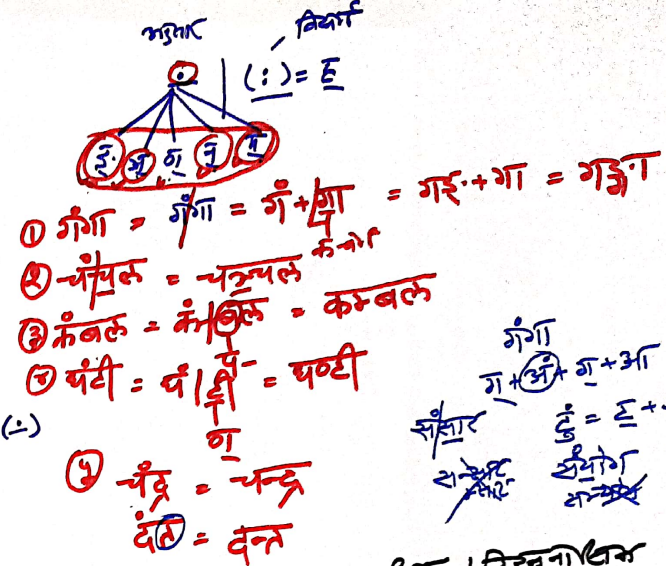 अनुस्वार
विसर्ग
(ं)
(:) = ह्
ङ् ञ् ण् न् म्
① गंगा = गंगा = गं + गा = गङ् + गा = गङ्गा
क-वर्ग
② चंचल = चंचल = चञ्चल
③ कंबल = कंबल = कम्बल
प-
④ घंटी = घंटी = घण्टी
ण्
(:)
⑤ चंद्र = चन्द्र
दंत = दन्त
गंगा
ग् + अं + ग् + आ
संसार
संयोग